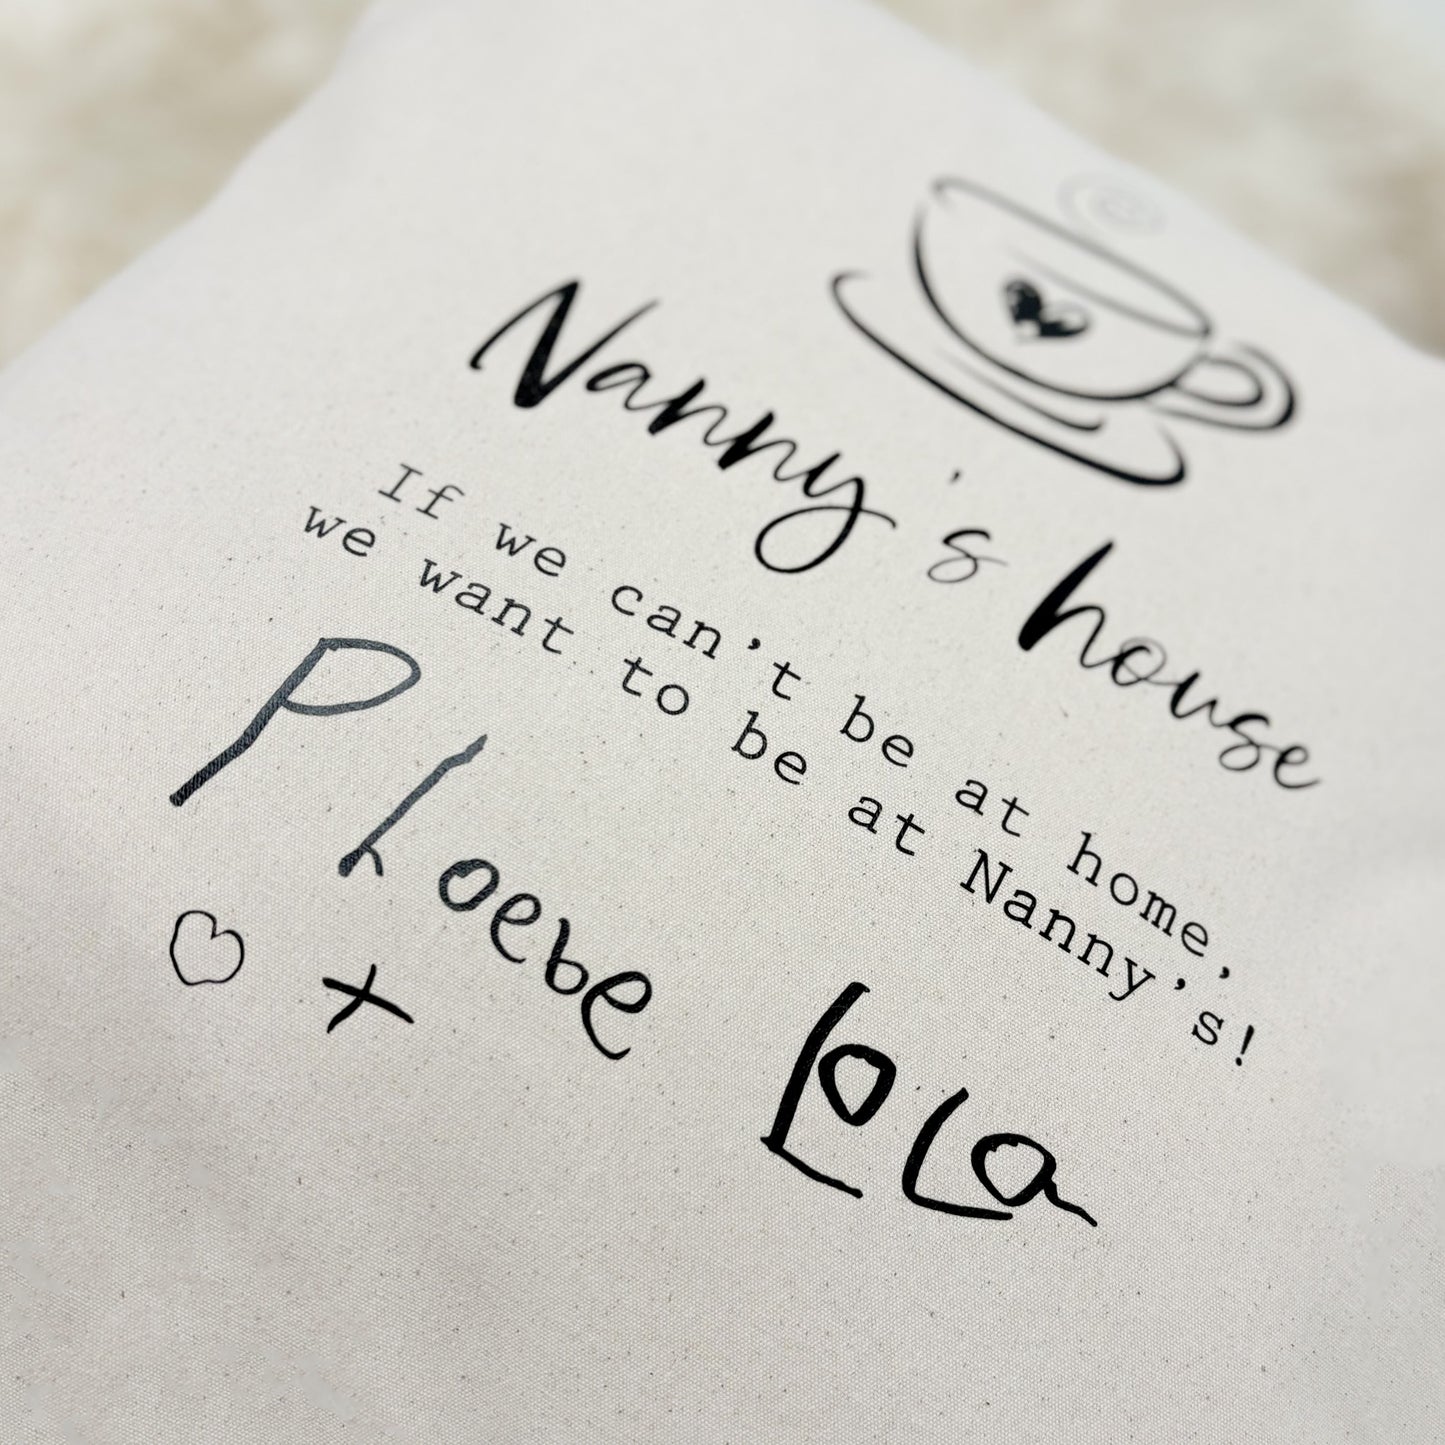 Nanny's house
If we can't be at home,
we want to be at Nanny's!
Phoebe
Lola